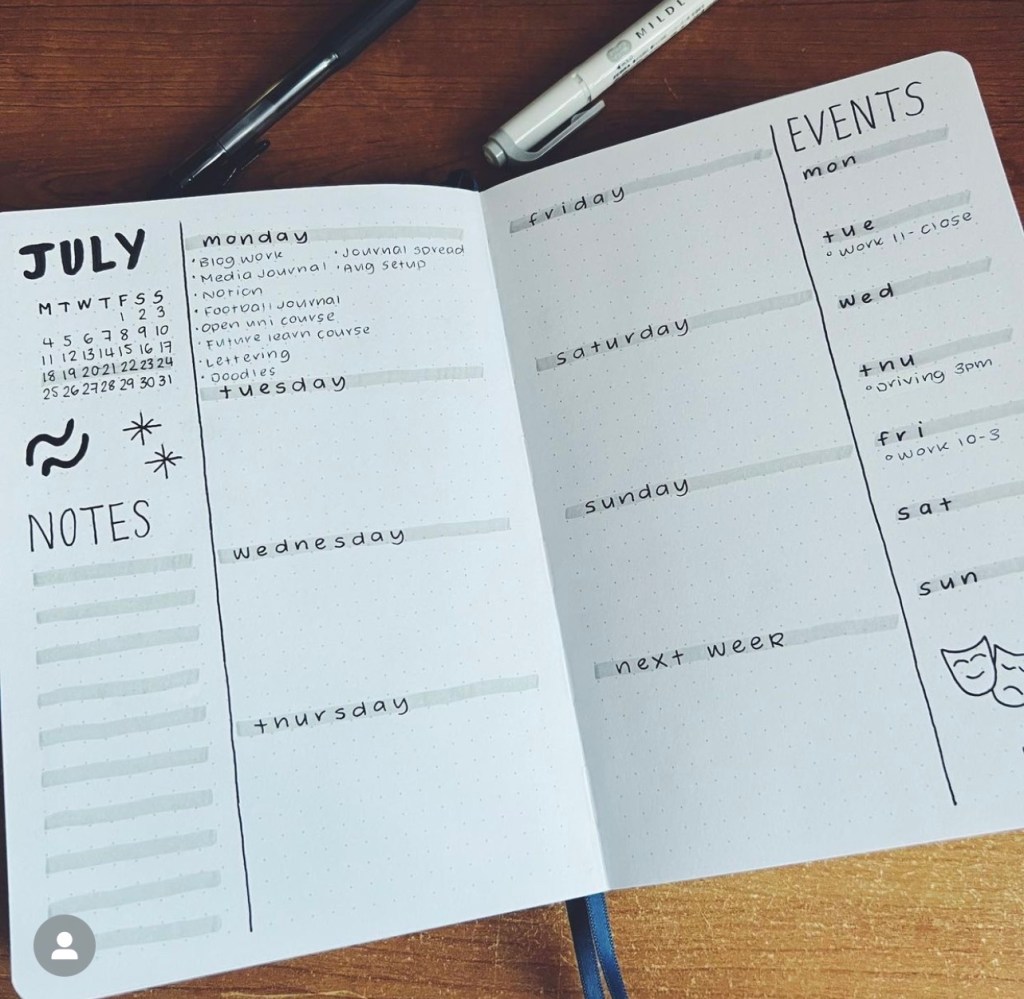 MILDL
JULY
M T W T F S S
1 2 3
4 5 6 7 8 9 10
11 12 13 14 15 16 17
18 19 20 21 22 23 24
25 26 27 28 29 30 31
NOTES
monday
· Blog work
· Media Journal
· Notion
· Football Journal
· Open uni course
· Future learn course
· Lettering
· Doodles
· Journal spread
· Aug setup
tuesday
wednesday
thursday
friday
saturday
sunday
next week
EVENTS
mon
tue
° work 11- close
wed
thu
° Driving 3pm
fri
° work 10-3
sat
sun